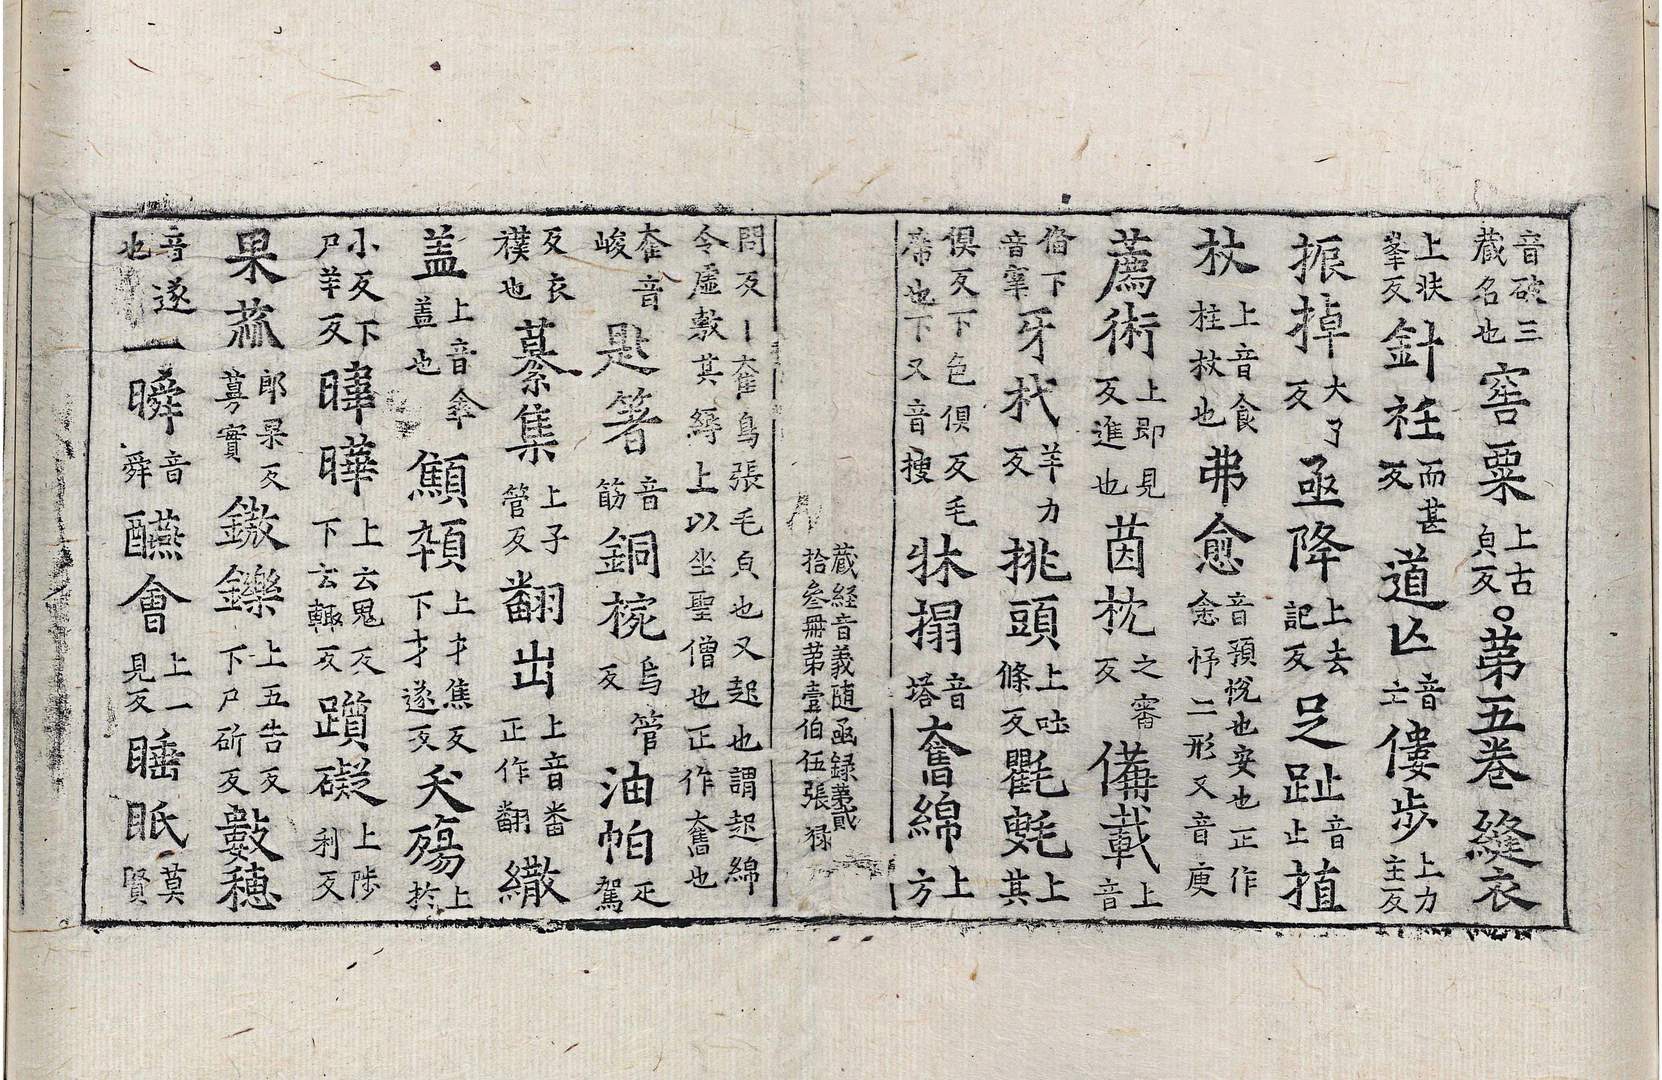 音破三藏名也窖粟上古皃反○苐五卷縫衣
上狀峯反針袵而甚反道亾音亡僂步上力主反
振掉大了反亟降上去記反足趾音止植
杖上音食柱杖也弗愈音預悅也安也正作悆忬二形又音庾
薦術上即見反進也茵枕之審反備載上音
俻下音宰牙杙羊力反挑頭上吐條反氍毹上其
俱反下色俱反毛席也下又音搜牀搨音塔奮綿上方
藏經音義随函録苐貳拾叄冊苐壹伯伍張 禄
問反丨奞鳥張毛皃也又起也謂起綿令虛敷其縟上以坐聖僧也正作奮也
奞音峻匙箸音筯銅椀烏管反油帕疋駕
反衣襆也纂集上子管反翻出上音番正作翻繖
盖上音傘盖也顦顇上才焦反下才遂反夭殤上於
小反下尸羊反暐曄上云鬼反下云輒反躓礙上陟利反
果蓏郎果反蔓實鐓鑠上五告反下尸斫反數穗
音遂也一瞬音舜醼會上一見反睡眠莫賢